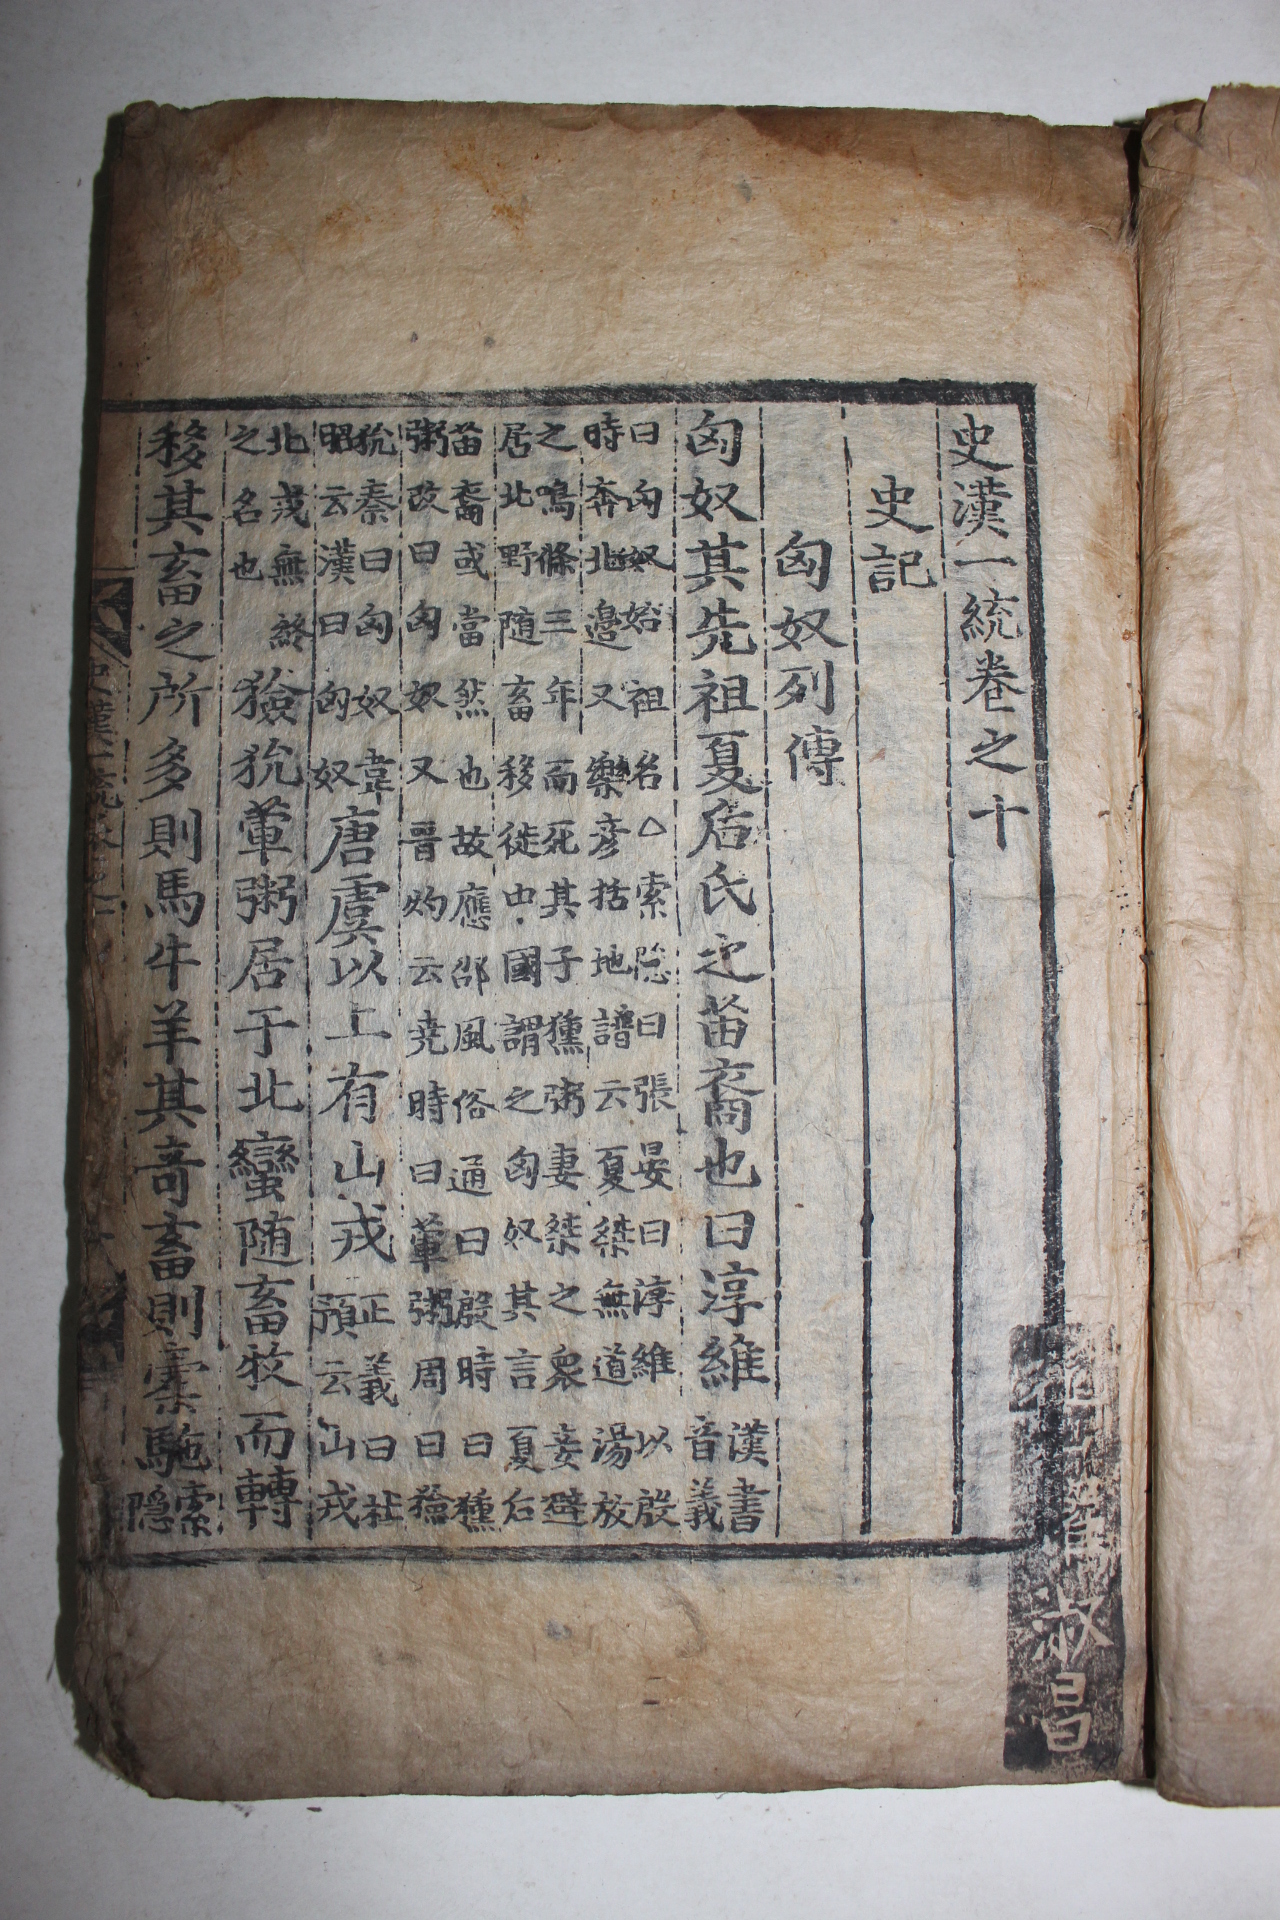 史漢一統卷之十
史記
匈奴列傳
匈奴其先祖夏后氏之苗裔也曰淳維漢書
音義
曰匈奴始祖名△索隐曰張晏曰淳維以殷
時奔北邉又樂彦括地譜云夏桀無道湯放
之鳴條三年而死其子獯粥妻桀之衆妾避
居北野随畜移徙中國謂之匈奴其言夏后
苗裔或當然也故應邵風俗通曰殷時曰獯
粥改曰匈奴又晋灼云尭時曰葷粥周曰獫
狁秦曰匈奴韋
昭云漢曰匈奴
唐虞以上有山戎
正義曰社
預云山戎
北戎無終
之名也
獫狁葷粥居于北蠻随畜牧而轉
移其畜之所多則馬牛羊其竒畜則橐駞索
隐
淑昌